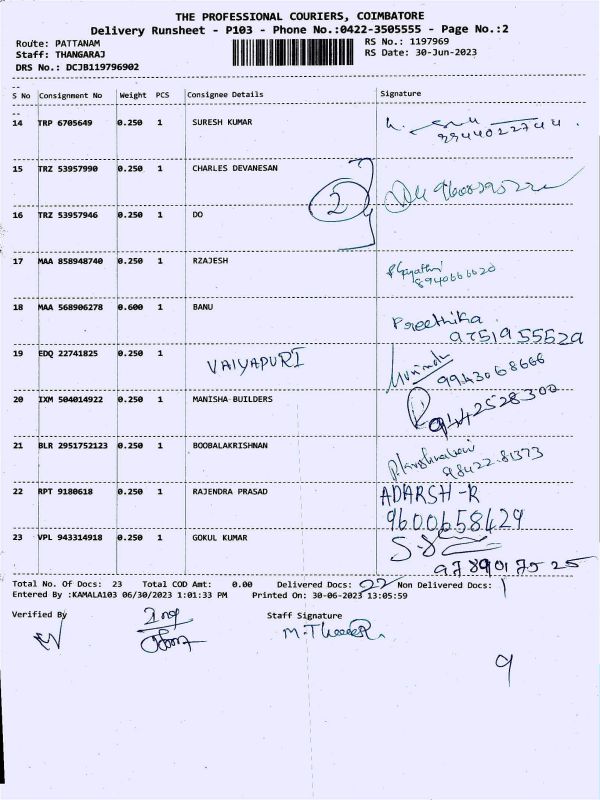 THE PROFESSIONAL COURIERS, COIMBATORE
Delivery Runsheet - P103 - Phone No.:0422-3505555 - Page No.:2
Route: PATTANAM
RS No.: 1197969
Staff: THANGARAJ
RS Date: 30-Jun-2023
DRS No.: DCJB119796902
S No Consignment No Weight PCS Consignee Details Signature
14 TRP 6705649 0.250 1 SURESH KUMAR
15 TRZ 53957990 0.250 1 CHARLES DEVANESAN
2
16 TRZ 53957946 0.250 1 DO
17 MAA 858948740 0.250 1 RZAJESH
8940666620
18 MAA 568906278 0.600 1 BANU Preethika
9751955529
19 EDQ 22741825 0.250 1 VAIYAPURI
9943068666
20 IXM 504014922 0.250 1 MANISHA BUILDERS
9442528300
21 BLR 2951752123 0.250 1 BOOBALAKRISHNAN
98422.81373
22 RPT 9180618 0.250 1 RAJENDRA PRASAD ADARSH-R
9600658429
23 VPL 943314918 0.250 1 GOKUL KUMAR
9789017525
Total No. Of Docs: 23 Total COD Amt: 0.00 Delivered Docs: 22 Non Delivered Docs: 1
Entered By :KAMALA103 06/30/2023 1:01:33 PM Printed On: 30-06-2023 13:05:59
Verified By
Staff Signature
9